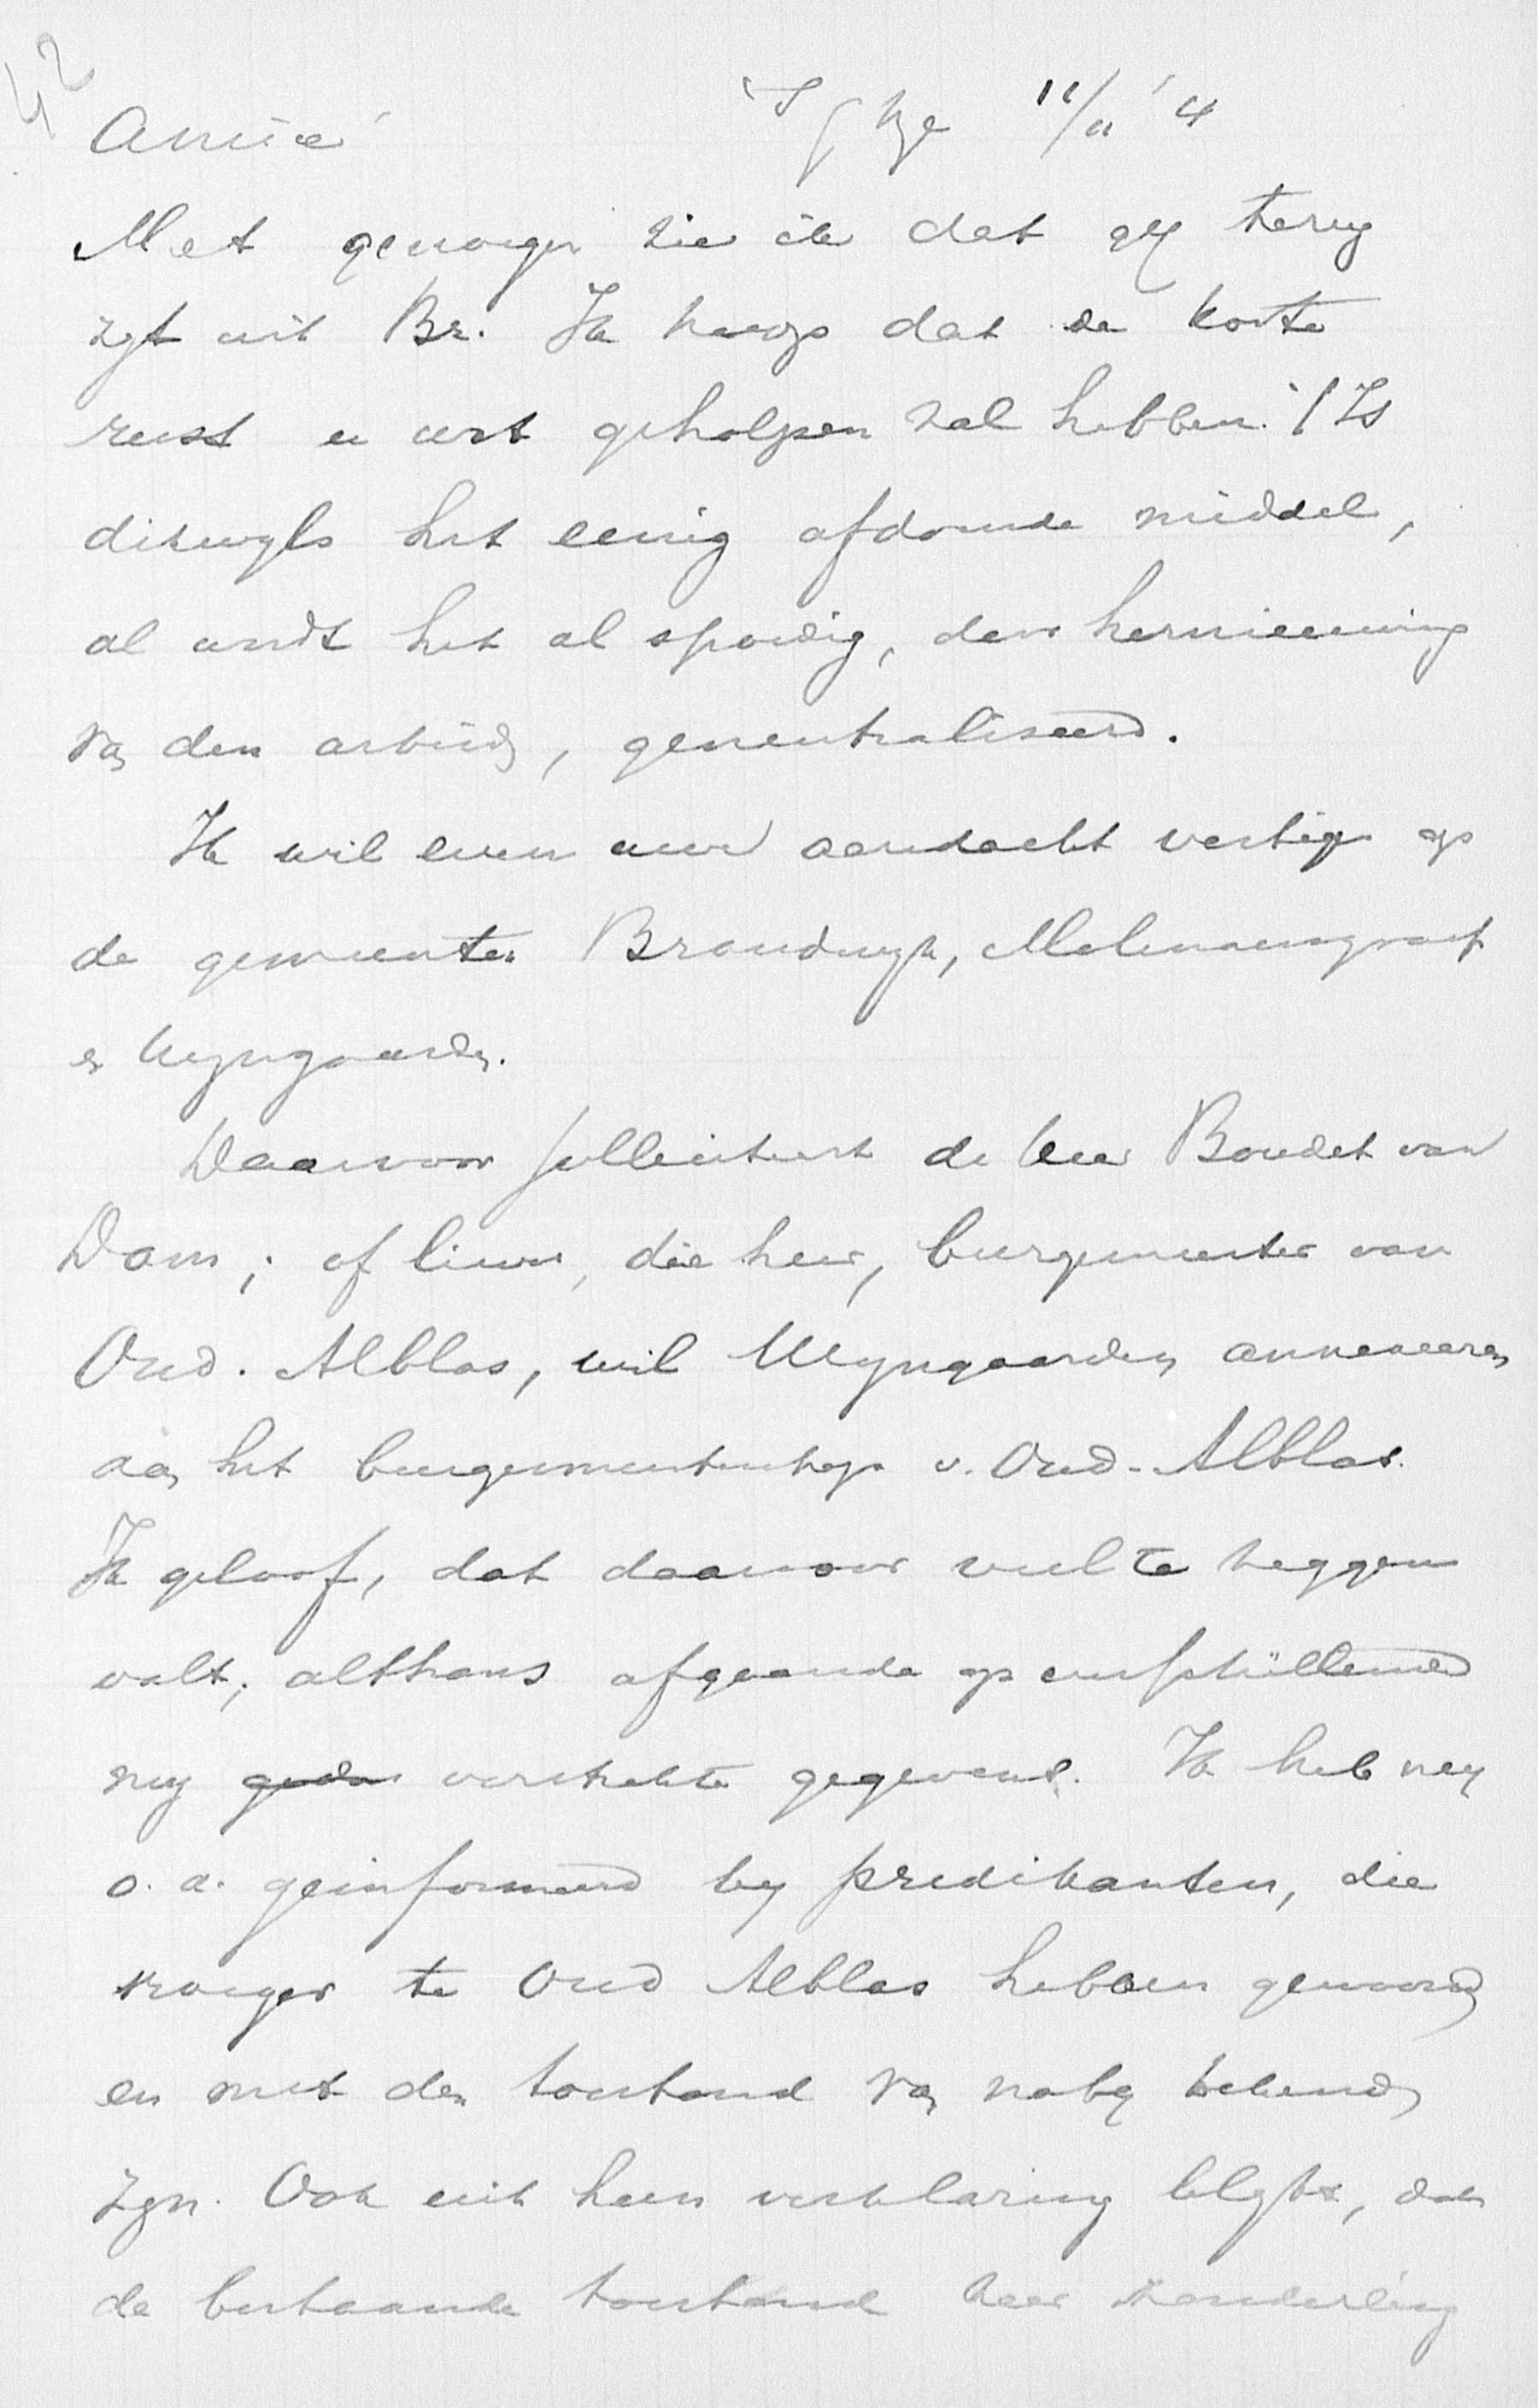 42
Amice 'sGhge 11/11 '4
Met genoegen zie ik dat gij terug
zijt uit Br. Ik hoop dat de korte
rust u wat geholpen zal hebben. 't Is
dikwijls het eenig afdoende middel,
al wordt het al spoedig, door hernieuwing
van den arbeid, geneutraliseerd.
Ik wil even uw aandacht vestigen op
de gemeenten Brandwijk, Molenaarsgraaf
en Wijngaarden.
Daarvoor solliciteert de heer Boudet van
Dam; of liever, die heer, burgemeester van
Oud-Alblas, wil Wijngaarden annexeeren
aan het burgemeesterschap v. Oud-Alblas.
Ik geloof, dat daarvoor veel te zeggen
valt; althans afgaande op verschillende
mij verstrekte gegevens. Ik heb mij
o.a. geinformeerd bij predikanten, die
vroeger te Oud Alblas hebben gewoond
en met den toestand van nabij bekend
zijn. Ook uit hun verklaring blijkt, dat
de bestaande toestand zeer zonderling